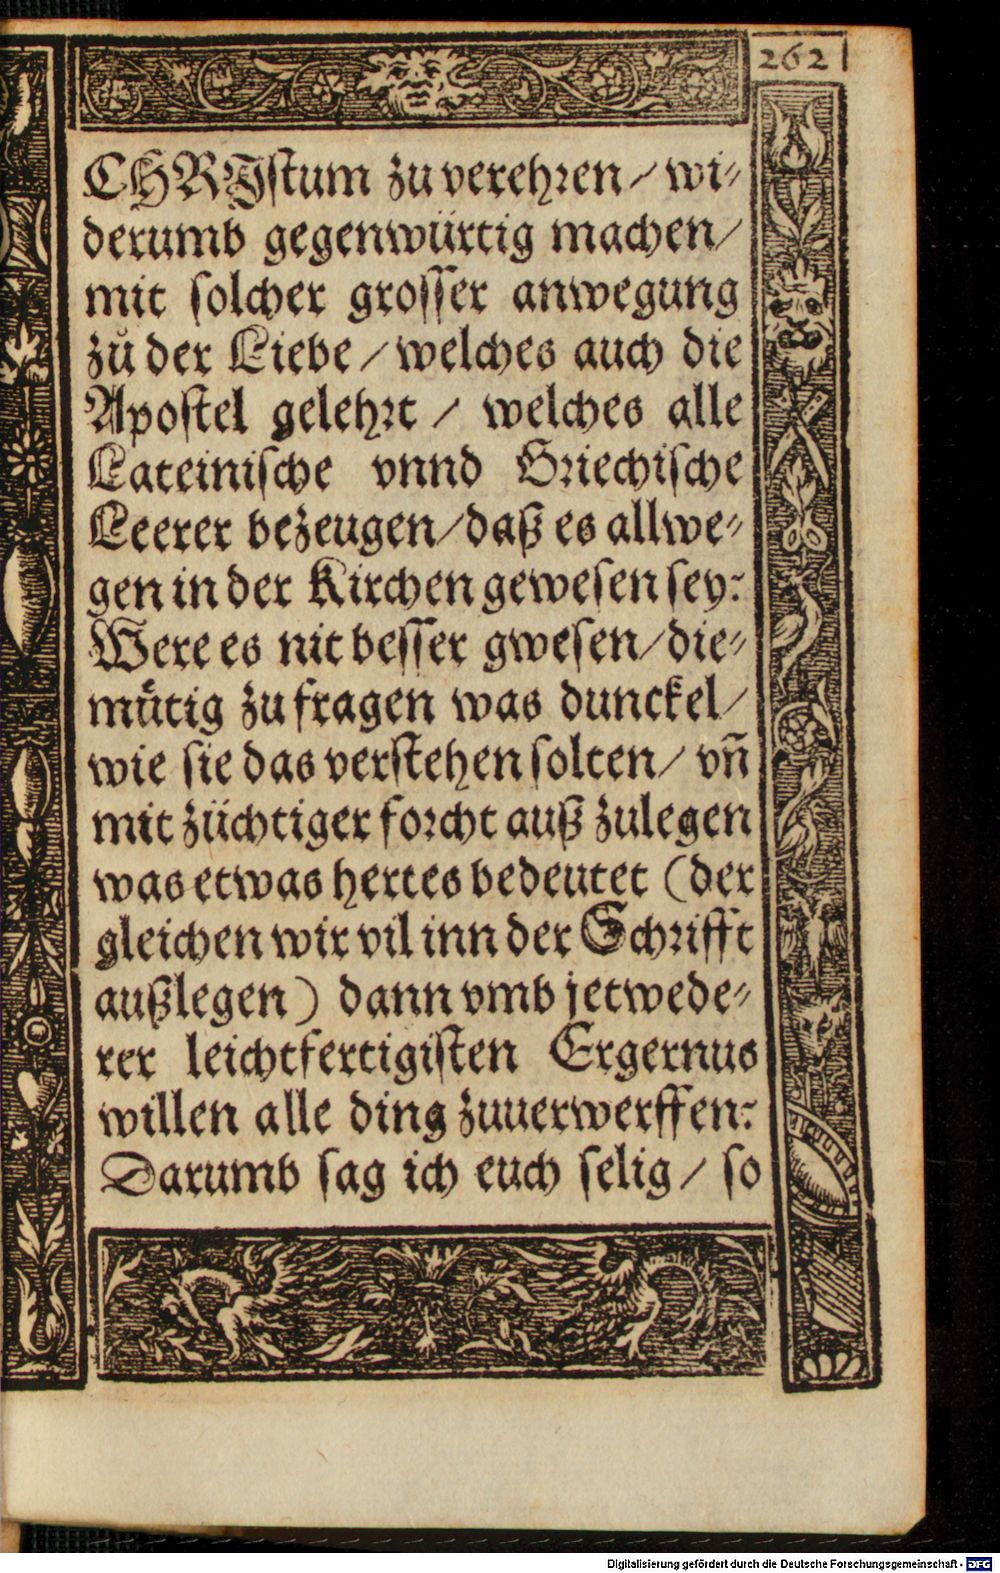 262
CHRJstum zu verehren / wi⸗
derumb gegenwürtig machen /
mit solcher grosser anwegung
zů der Liebe / welches auch die
Apostel gelehrt / welches alle
Lateinische vnnd Griechische
Leerer bezeugen / daß es allwe⸗
gen in der Kirchen gewesen sey:
Were es nit besser gwesen / die⸗
mütig zu fragen was dunckel /
wie sie das verstehen solten / vñ
mit züchtiger forcht auß zulegen
was etwas hertes bedeutet (der
gleichen wir vil inn der Schrifft
außlegen) dann vmb jetwede⸗
rer leichtfertigisten Ergernus
willen alle ding zuuerwerffen:
Darumb sag ich euch selig / so
Digitalisierung gefördert durch die Deutsche Forschungsgemeinschaft - DFG